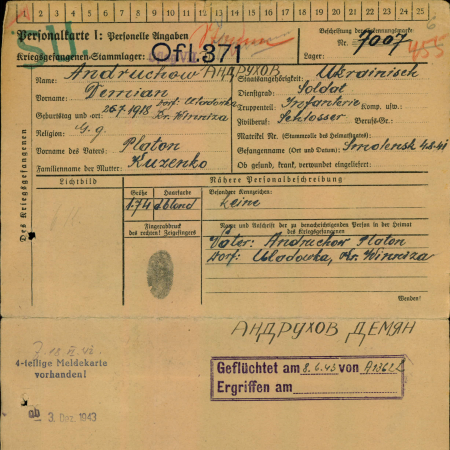 1 2 3 4 5 6 7 8 9 10 11 12 13 14 15 16 17 18 19 20 21 22 23 24 25
Personalkarte I: Personelle Angaben
Kriegsgefangenen-Stammlager: Ofl. 371
Beschriftung der Erkennungsmarke
Nr. 7007
Lager:
SU.
455
Des Kriegsgefangenen
Name: Andruchow АНДРУХОВ
Vorname: Demian
Geburtstag und -ort: 26.7.1918 Dorf: Uladowka
Kr. Winniza
Religion: g.g.
Vorname des Vaters: Platon
Familienname der Mutter: Kuzenko
Staatsangehörigkeit: Ukrainisch
Dienstgrad: Soldat
Truppenteil: Infanterie Komp. usw.:
Zivilberuf: Schlosser Berufs-Gr.:
Matrikel Nr. (Stammrolle des Heimatstaates):
Gefangennahme (Ort und Datum): Smolensk
Ob gesund, krank, verwundet eingeliefert:
Lichtbild
Nähere Personalbeschreibung
Größe Haarfarbe Besondere Kennzeichen:
1.74 d.blond keine
Fingerabdruck
des rechten! Zeigefingers
Name und Anschrift der zu benachrichtigenden Person in der Heimat
des Kriegsgefangenen
Vater: Andruchow Platon
Dorf: Uladowka, Kr. Winniza
Wenden!
АНДРУХОВ ДЕМЯН
4-teilige Meldekarte
vorhanden!
Geflüchtet am 8.6.43 von
Ergriffen am
ab 3. Dez. 1943